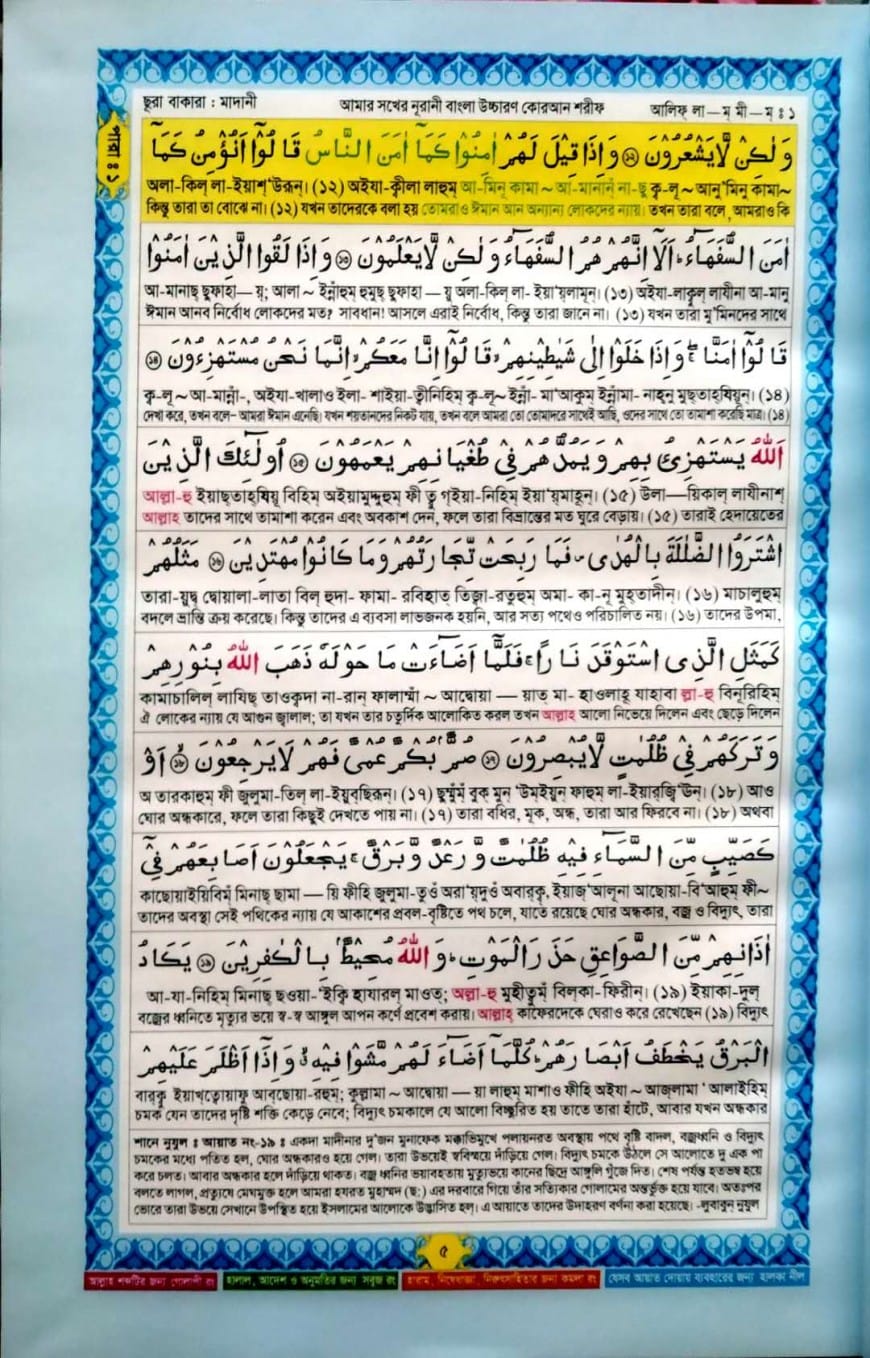 ছুরা বাকারা : মাদানী আমার সখের নূরানী বাংলা উচ্চারণ কোরআন শরীফ আলিফ্ লা—ম্ মী—ম্ ঃ ১
পারা : ১
وَلٰكِنْ لَّا يَشْعُرُوْنَ ۝١٢ وَاِذَا قِيْلَ لَهُمْ اٰمِنُوْا كَمَآ اٰمَنَ النَّاسُ قَالُوْٓا اَنُؤْمِنُ كَمَآ
অলা-কিল্ লা-ইয়াশ্‘উরূন্। (১২) অইযা-ক্বীলা লাহুম্ আ-মিনূ কামা ~ আ-মানান্ না-ছু ক্ব-লূ ~ আনু’মিনু কামা~
কিন্তু তারা তা বোঝে না। (১২) যখন তাদেরকে বলা হয় তোমরাও ঈমান আন অন্যান্য লোকদের ন্যায়। তখন তারা বলে, আমরাও কি
اٰمَنَ السُّفَهَآءُ ؕ اَلَآ اِنَّهُمْ هُمُ السُّفَهَآءُ وَلٰكِنْ لَّا يَعْلَمُوْنَ ۝١٣ وَاِذَا لَقُوا الَّذِيْنَ اٰمَنُوْا
আ-মানাছ্ ছুফাহা— য়্; আলা ~ ইন্নাঁহুম্ হুমুছ্ ছুফাহা — য়ু অলা-কিল্ লা- ইয়া’য়্লামূন্। (১৩) অইযা-লাক্বুল্ লাযীনা আ-মানূ
ঈমান আনব নির্বোধ লোকদের মত? সাবধান! আসলে এরাই নির্বোধ, কিন্তু তারা জানে না। (১৩) যখন তারা মু’মিনদের সাথে
قَالُوْٓا اٰمَنَّا ۖۚ وَاِذَا خَلَوْا اِلٰى شَيٰطِيْنِهِمْ ۙ قَالُوْٓا اِنَّا مَعَكُمْ ۙ اِنَّمَا نَحْنُ مُسْتَهْزِءُوْنَ ۝١٤
ক্ব-লূ ~ আ-মান্নাঁ-, অইযা-খালাও ইলা- শাইয়া-ত্বীনিহিম্ ক্ব-লূ~ ইন্নাঁ- মা‘আকুম্ ইন্নাঁমা- নাহ্নু মুছ্তাহ্যিয়ূন্। (১৪)
দেখা করে, তখন বলে– আমরা ঈমান এনেছি। যখন শয়তানদের নিকট যায়, তখন বলে আমরা তো তোমাদরে সাথেই আছি, ওদের সাথে তো তামাশা করেছি মাত্র। (১৪)
اَللّٰهُ يَسْتَهْزِئُ بِهِمْ وَيَمُدُّهُمْ فِيْ طُغْيَانِهِمْ يَعْمَهُوْنَ ۝١٥ اُولٰٓئِكَ الَّذِيْنَ
আল্লা-হু ইয়াছ্তাহ্যিয়ূ বিহিম্ অইয়ামুদ্দুহুম্ ফী ত্বুগ্ইয়া-নিহিম্ ইয়া’য়্মাহূন্। (১৫) উলা—য়িকাল্ লাযীনাশ্
আল্লাহ তাদের সাথে তামাশা করেন এবং অবকাশ দেন, ফলে তারা বিভ্রান্তের মত ঘুরে বেড়ায়। (১৫) তারাই হেদায়েতের
اشْتَرَوُا الضَّلٰلَةَ بِالْهُدٰى ۪ فَمَا رَبِحَتْ تِّجَارَتُهُمْ وَمَا كَانُوْا مُهْتَدِيْنَ ۝١٦ مَثَلُهُمْ
তারা-য়ুদ্ব্ দ্বোয়ালা-লাতা বিল্ হুদা- ফামা- রবিহাত্ তিজ্বা-রতুহুম্ অমা- কা-নূ মুহ্তাদীন্। (১৬) মাচালুহুম্
বদলে ভ্রান্তি ক্রয় করেছে। কিন্তু তাদের এ ব্যবসা লাভজনক হয়নি, আর সত্য পথেও পরিচালিত নয়। (১৬) তাদের উপমা,
كَمَثَلِ الَّذِى اسْتَوْقَدَ نَارًا ۚ فَلَمَّآ اَضَآءَتْ مَا حَوْلَهٗ ذَهَبَ اللّٰهُ بِنُوْرِهِمْ
কামাচালিল্ লাযিছ্ তাওক্বদা না-রান্ ফালাম্মাঁ ~ আদ্বোয়া — য়াত্ মা- হাওলাহূ যাহাবা ল্লা-হু বিনূরিহিম্
ঐ লোকের ন্যায় যে আগুন জ্বালাল; তা যখন তার চতুর্দিক আলোকিত করল তখন আল্লাহ আলো নিভেয়ে দিলেন এবং ছেড়ে দিলেন
وَتَرَكَهُمْ فِيْ ظُلُمٰتٍ لَّا يُبْصِرُوْنَ ۝١٧ صُمٌّۢ بُكْمٌ عُمْىٌ فَهُمْ لَا يَرْجِعُوْنَ ۝١٨ اَوْ
অ তারকাহুম্ ফী জুলুমা-তিল্ লা-ইয়ুব্ছিরূন্। (১৭) ছুম্মুঁম্ বুক্ মুন্ ‘উমইয়ুন্ ফাহুম্ লা-ইয়ার্জ্বি‘ঊন্। (১৮) আও
ঘোর অন্ধকারে, ফলে তারা কিছুই দেখতে পায় না। (১৭) তারা বধির, মূক, অন্ধ, তারা আর ফিরবে না। (১৮) অথবা
كَصَيِّبٍ مِّنَ السَّمَآءِ فِيْهِ ظُلُمٰتٌ وَّرَعْدٌ وَّبَرْقٌ ۚ يَجْعَلُوْنَ اَصَابِعَهُمْ فِيْٓ
কাছোয়াইয়িবিম্ঁ মিনাছ্ ছামা — য়ি ফীহি জুলুমা-তুওঁ অরা’য়্দুওঁ অবারক্ব্, ইয়াজ্‘আলূনা আছোয়া-বি‘আহুম্ ফী~
তাদের অবস্থা সেই পথিকের ন্যায় যে আকাশের প্রবল-বৃষ্টিতে পথ চলে, যাতে রয়েছে ঘোর অন্ধকার, বজ্র ও বিদ্যুৎ, তারা
اٰذَانِهِمْ مِّنَ الصَّوَاعِقِ حَذَرَ الْمَوْتِ ؕ وَاللّٰهُ مُحِيْطٌۢ بِالْكٰفِرِيْنَ ۝١٩ يَكَادُ
আ-যা-নিহিম্ মিনাছ্ ছওয়া-‘ইক্বি হাযারল্ মাওত্; অল্লা-হু মুহীত্বুম্ঁ বিল্কা-ফিরীন্। (১৯) ইয়াকা-দুল্
বজ্রের ধ্বনিতে মৃত্যুর ভয়ে স্ব-স্ব আঙ্গুল আপন কর্ণে প্রবেশ করায়। আল্লাহ্ কাফেরদেকে ঘেরাও করে রেখেছেন (১৯) বিদ্যুৎ
الْبَرْقُ يَخْطَفُ اَبْصَارَهُمْ ؕ كُلَّمَآ اَضَآءَ لَهُمْ مَّشَوْا فِيْهِ ۙ وَاِذَآ اَظْلَمَ عَلَيْهِمْ
বারক্বু ইয়াখ্ত্বোয়াফু আব্ছোয়া-রহুম্; কুল্লামা ~ আদ্বোয়া — য়া লাহুম্ মাশাও ফীহি অইযা ~ আজ্লামা ‘আলাইহিম্
চমক যেন তাদের দৃষ্টি শক্তি কেড়ে নেবে; বিদ্যুৎ চমকালে যে আলো বিচ্ছুরিত হয় তাতে তারা হাঁটে, আবার যখন অন্ধকার
শানে নুযুল ঃ আয়াত নং-১৯ ঃ একদা মাদীনার দু’জন মুনাফেক মক্কাভিমুখে পলায়নরত অবস্থায় পথে বৃষ্টি বাদল, বজ্রধ্বনি ও বিদ্যুৎ
চমকের মধ্যে পতিত হল, ঘোর অন্ধকারও হয়ে গেল। তারা উভয়েই স্ববিস্ময়ে দাঁড়িয়ে গেল। বিদ্যুৎ চমকে উঠলে সে আলোতে দু এক পা
করে চলত। আবার অন্ধকার হলে দাঁড়িয়ে থাকত। বজ্র ধ্বনির ভয়াবহতায় মৃত্যুভয়ে কানের ছিদ্রে আঙ্গুলি গুঁজে দিত। শেষ পর্যন্ত হতভম্ব হয়ে
বলতে লাগল, প্রত্যুষে মেঘমুক্ত হলে আমরা হযরত মুহাম্মদ (ছ:) এর দরবারে গিয়ে তাঁর সত্যিকার গোলামের অন্তর্ভুক্ত হয়ে যাবে। অতঃপর
ভোরে তারা উভয়ে সেখানে উপস্থিত হয়ে ইসলামের আলোকে উদ্ভাসিত হল। এ আয়াতে তাদের উদাহরণ বর্ণনা করা হয়েছে। -লুবাবুন্ নুযুল
৫
আল্লাহ শব্দটির জন্য গোলাপী রং হালাল, আদেশ ও অনুমতির জন্য সবুজ রং হারাম, নিষেধাজ্ঞা, নিরুৎসাহিতার জন্য কমলা রং যেসব আয়াত দোয়ায় ব্যবহারের জন্য হালকা নীল